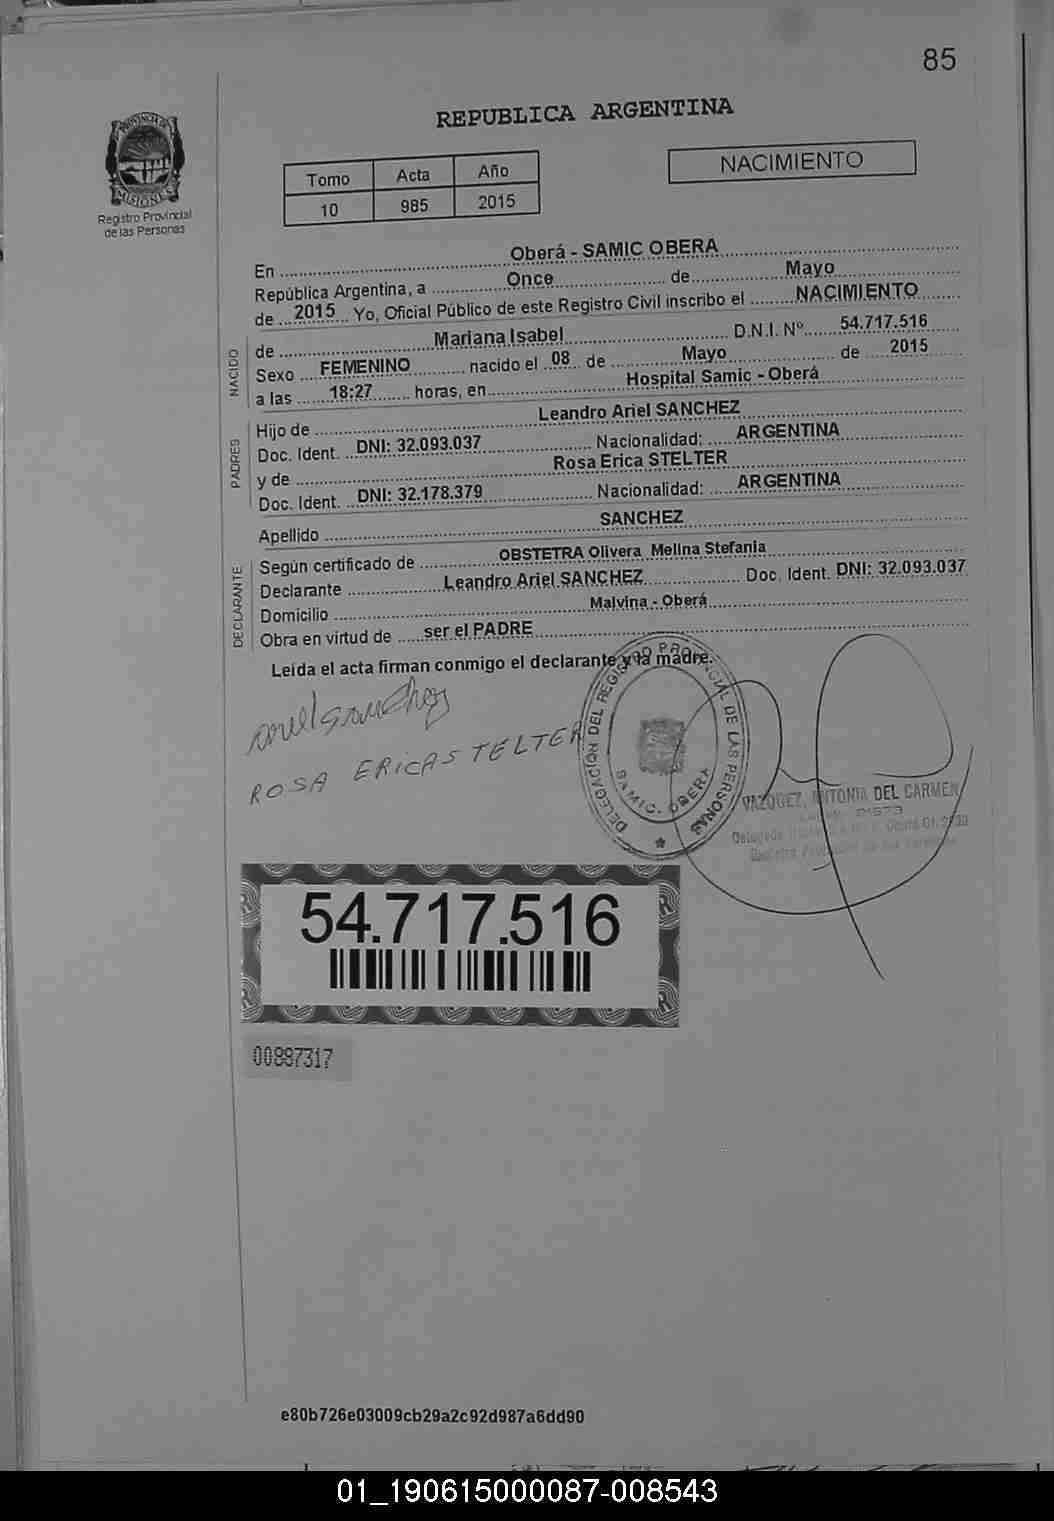 85
REPUBLICA ARGENTINA
PROVINCIA DE MISIONES
Registro Provincial
de las Personas
Tomo Acta Año
10 985 2015
NACIMIENTO
En Oberá - SAMIC OBERA
República Argentina, a Once de Mayo
de 2015 Yo, Oficial Público de este Registro Civil inscribo el NACIMIENTO
NACIDO
de Mariana Isabel D.N.I. Nº 54.717.516
Sexo FEMENINO nacido el 08 de Mayo de 2015
a las 18:27 horas, en Hospital Samic - Oberá
PADRES
Hijo de Leandro Ariel SANCHEZ
Doc. Ident. DNI: 32.093.037 Nacionalidad: ARGENTINA
y de Rosa Erica STELTER
Doc. Ident. DNI: 32.178.379 Nacionalidad: ARGENTINA
Apellido SANCHEZ
DECLARANTE
Según certificado de OBSTETRA Olivera Melina Stefania
Declarante Leandro Ariel SANCHEZ Doc. Ident. DNI: 32.093.037
Domicilio Malvina - Oberá
Obra en virtud de ser el PADRE
Leída el acta firman conmigo el declarante y la madre.
ariel sanchez
ROSA ERICA STELTER
DELEGACIÓN DEL REGISTRO PROVINCIAL DE LAS PERSONAS
SAMIC. OBERA
VAZQUEZ, ANTONIA DEL CARMEN
54.717.516
00887317
e80b726e03009cb29a2c92d987a6dd90
01_190615000087-008543